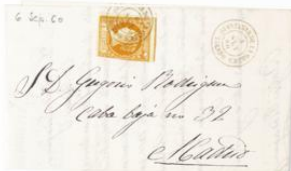 6 Sep. 60
S. D. Gregorio Rodriguez
Caba baja no 32
Madrid